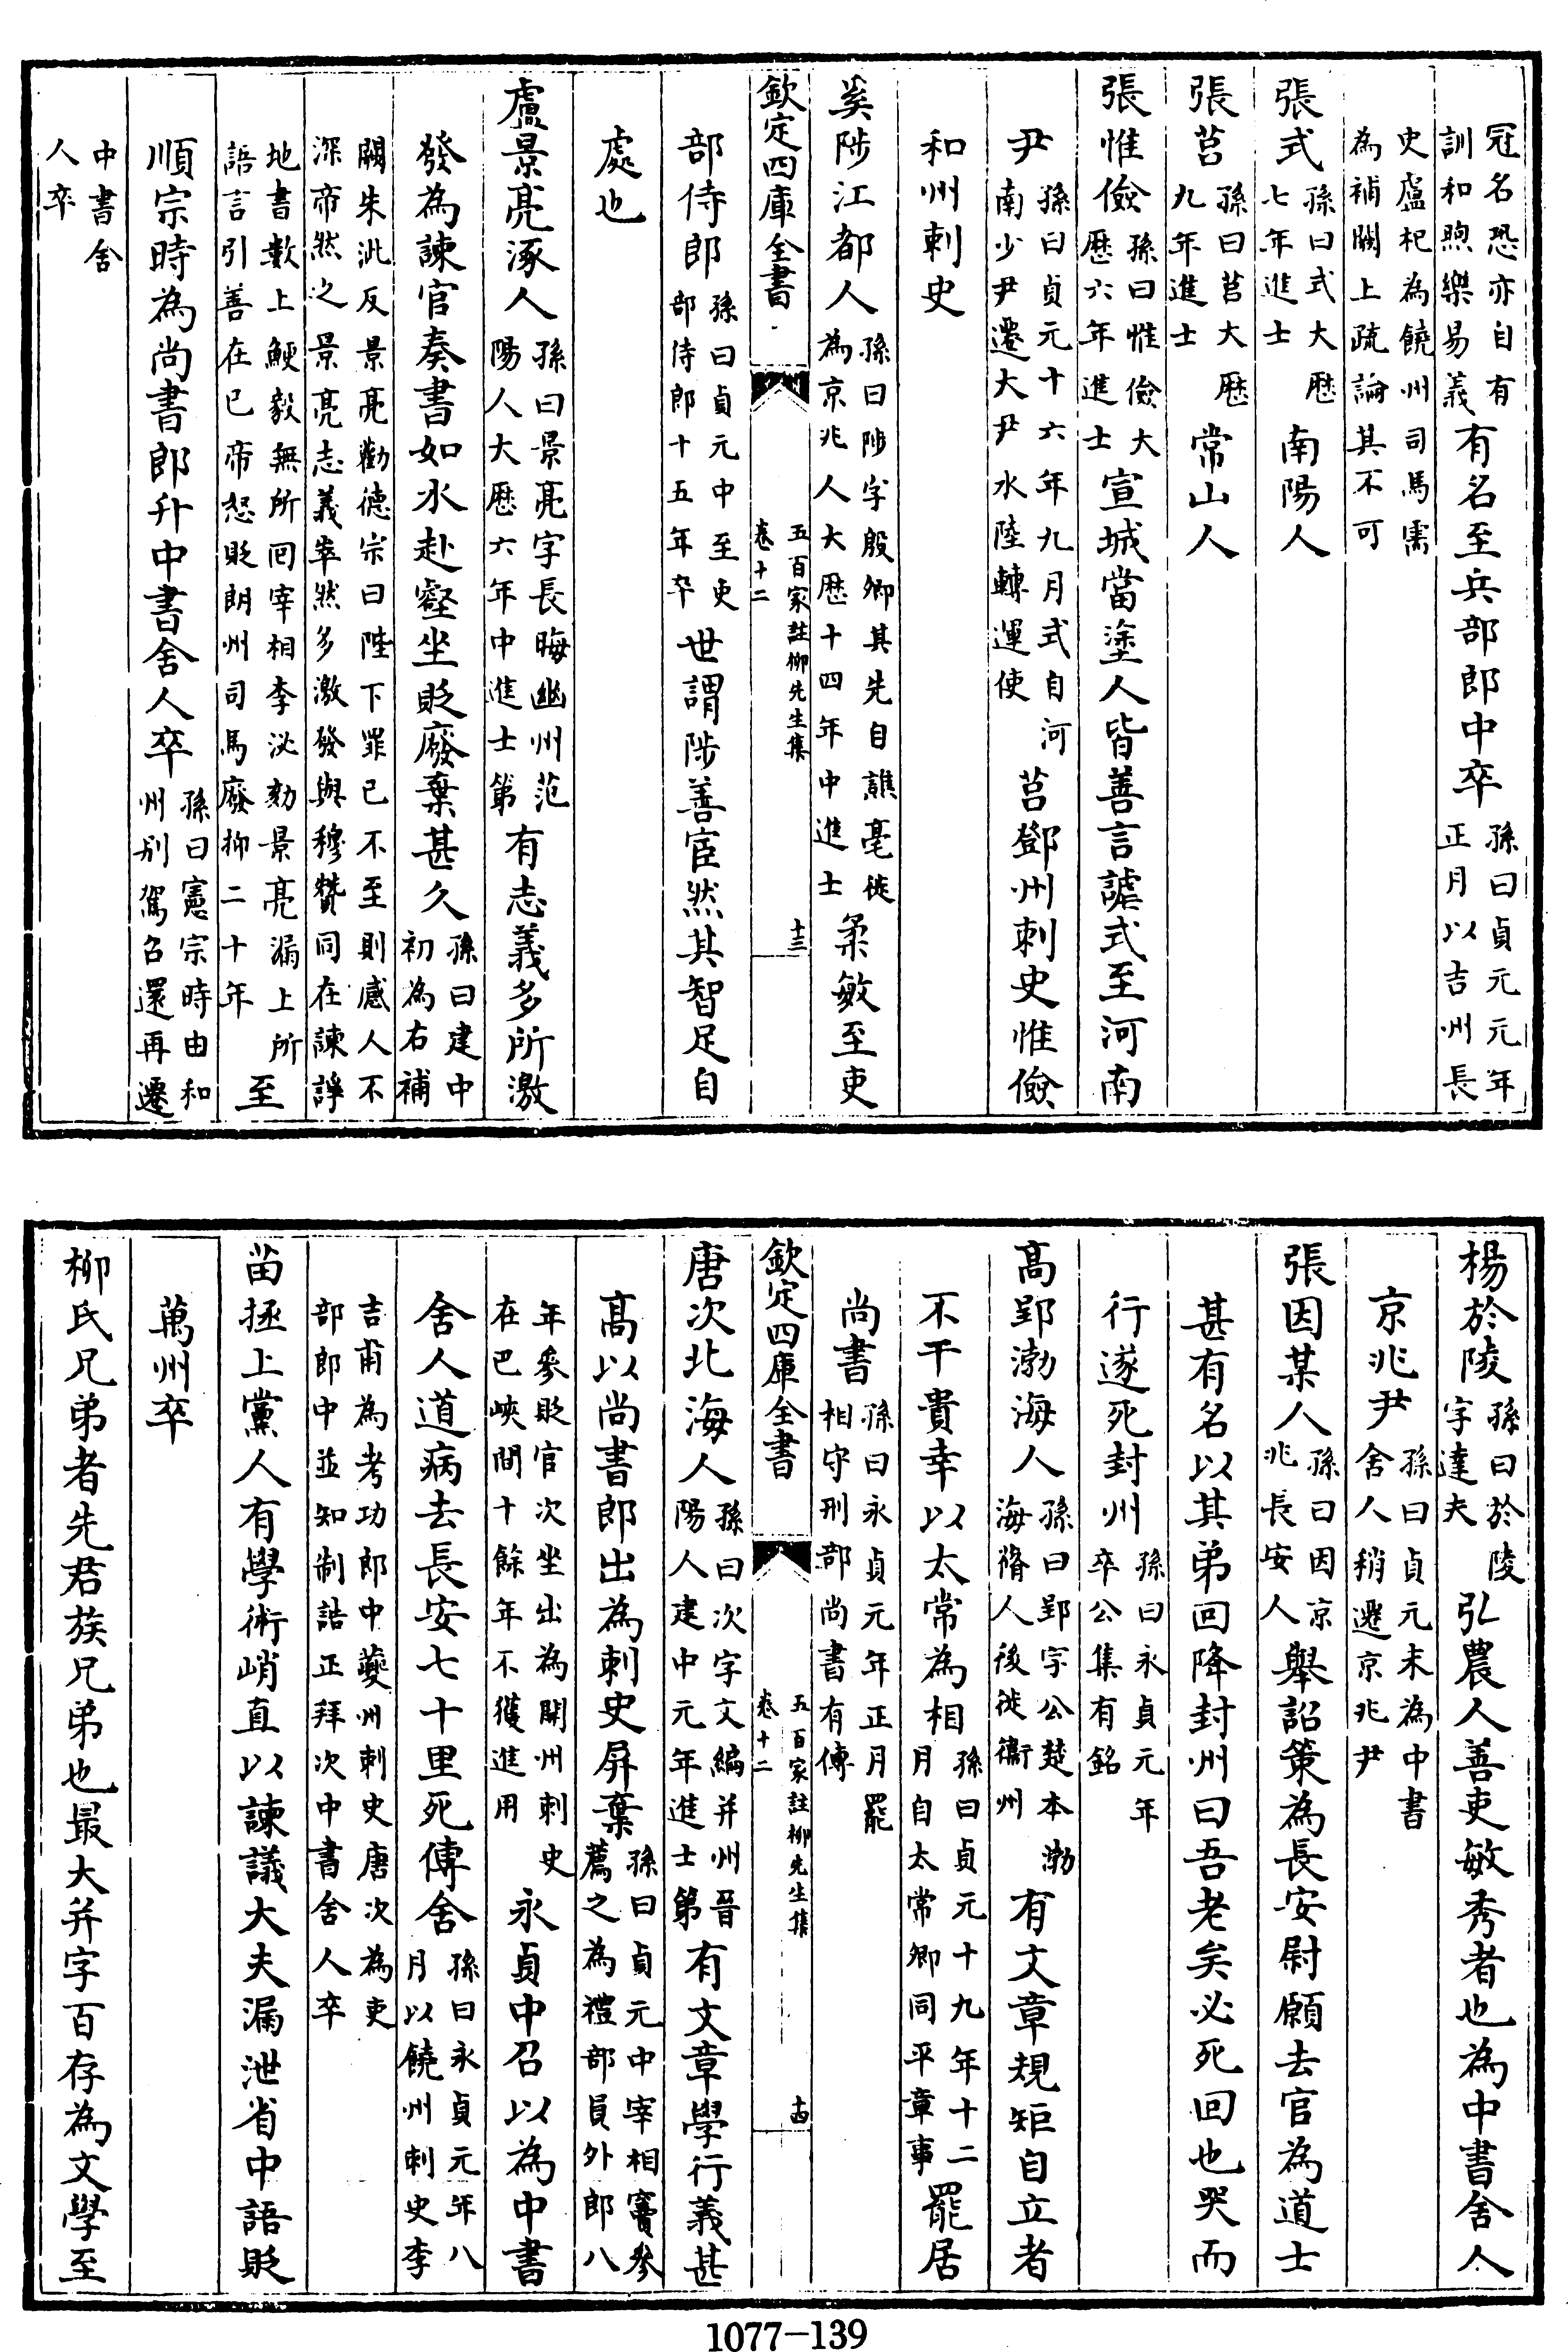 冠名恐亦自有
訓和煦樂易義
有名至兵部郎中卒
孫曰貞元元年
正月以吉州長
史盧杞為饒州司馬需
為補闕上疏論其不可
張式
孫曰式大厯
七年進士
南陽人
張莒
孫曰莒大厯
九年進士
常山人
張惟儉
孫曰惟儉大
厯六年進士
宣城當塗人皆善言謔式至河南
尹
孫曰貞元十六年九月式自河
南少尹遷大尹水陸轉運使
莒鄧州刺史惟儉
和州刺史
奚陟江都人
孫曰陟字殷卿其先自譙亳徙
為京兆人大厯十四年中進士
柔敏至吏
欽定四庫全書
五百家註柳先生集
卷十二
十三
部侍郎
孫曰貞元中至吏
部侍郎十五年卒
世謂陟善宦然其智足自
處也
盧景亮涿人
孫曰景亮字長晦幽州范
陽人大厯六年中進士第
有志義多所激
發為諫官奏書如水赴壑坐貶廢棄甚久
孫曰建中
初為右補
闕朱泚反景亮勸德宗曰陛下罪已不至則感人不
深帝然之景亮志義崒然多激發與穆贊同在諫諍
地書數上鯁毅無所囘宰相李泌劾景亮漏上所
語言引善在已帝怒貶朗州司馬廢抑二十年
至
順宗時為尚書郎升中書舍人卒
孫曰憲宗時由和
州别駕召還再遷
中書舍
人卒
楊於陵
孫曰於陵
字達夫
弘農人善吏敏秀者也為中書舍人
京兆尹
孫曰貞元末為中書
舍人稍遷京兆尹
張因某人
孫曰因京
兆長安人
舉詔策為長安尉願去官為道士
甚有名以其弟回降封州曰吾老矣必死回也哭而
行遂死封州
孫曰永貞元年
卒公集有銘
髙郢渤海人
孫曰郢字公楚本渤
海蓨人後徙衞州
有文章規矩自立者
不干貴幸以太常為相
孫曰貞元十九年十二
月自太常卿同平章事
罷居
尚書
孫曰永貞元年正月罷
相守刑部尚書有傳
欽定四庫全書
五百家註柳先生集
卷十二
十四
唐次北海人
孫曰次字文編并州晉
陽人建中元年進士第
有文章學行義甚
髙以尚書郎出為刺史屏棄
孫曰貞元中宰相竇參
薦之為禮部員外郎八
年參貶官次坐出為開州刺史
在巴峽間十餘年不獲進用
永貞中召以為中書
舍人道病去長安七十里死傳舍
孫曰永貞元年八
月以饒州刺史李
吉甫為考功郎中夔州刺史唐次為吏
部郎中並知制誥正拜次中書舍人卒
苗拯上黨人有學術峭直以諫議大夫漏泄省中語貶
萬州卒
柳氏兄弟者先君族兄弟也最大并字百存為文學至
1077—139